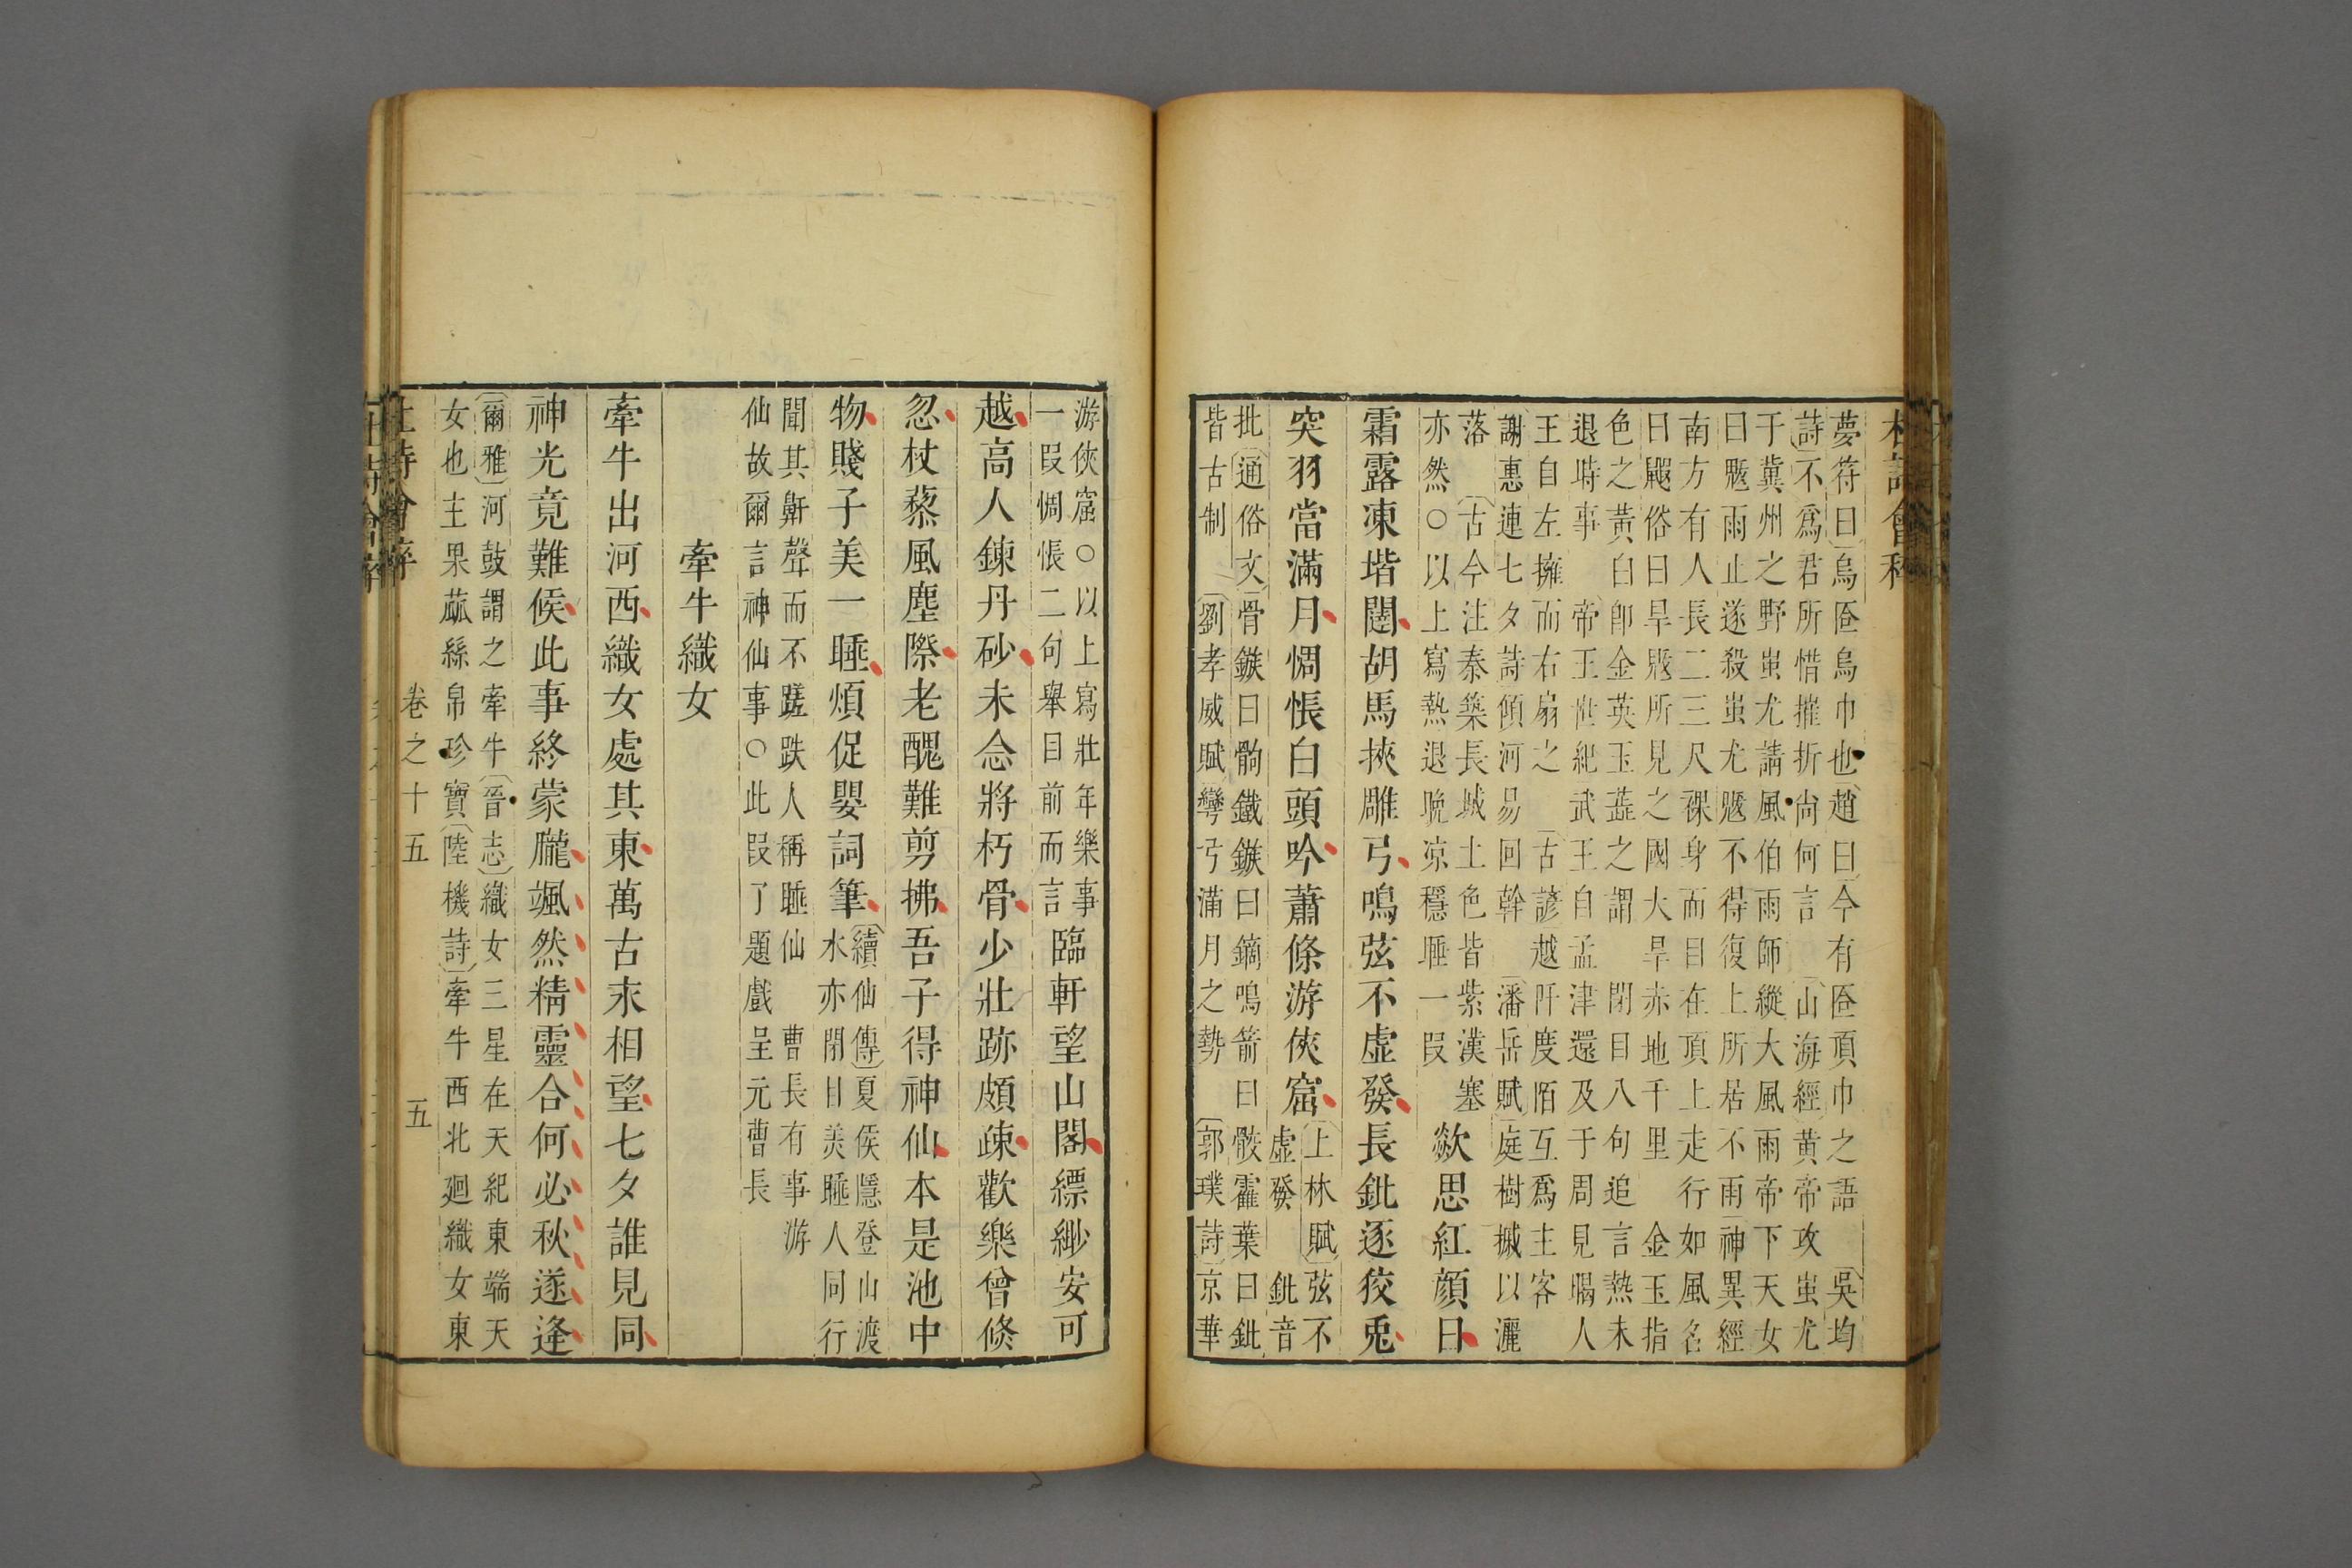 杜詩會稡
夢符曰烏匼烏巾也趙曰今有匼頂巾之語　吳均
詩不爲君所惜摧折尙何言　山海經黃帝攻蚩尤
于冀州之野蚩尤請風伯雨師縱大風雨帝下天女
曰魃雨止遂殺蚩尤魃不得復上所居不雨神異經
南方有人長二三尺裸身而目在頂上走行如風名
曰䰤俗曰旱魃所見之國大旱赤地千里　金玉指
色之黃白卽金英玉蕋之謂　閉目八句追言熱未
退時事　帝王世紀武王自孟津還及于周見暍人
王自左擁而右扇之　古諺越阡度陌互爲主客
謝惠連七夕詩傾河易回斡　潘岳賦庭樹摵以灑
落　古今注秦築長城土色皆紫漢塞
亦然○以上寫熱退晚凉穩睡一段
歘思紅顔日
霜露凍堦闥胡馬挾雕弓鳴弦不虛發長鈚逐狡兎
突羽當滿月惆悵白頭吟蕭條游俠窟
上林賦弦不
虛發　鈚音
批通俗文骨鏃曰骲鐵鏃曰鏑鳴箭曰骹霍葉曰鈚
皆古制　劉孝威賦彎弓滿月之勢　郭璞詩京華
游俠窟○以上寫壯年樂事
一段惆悵二句舉目前而言
臨軒望山閣縹緲安可
越高人鍊丹砂未念將朽骨少壯跡頗疎歡樂曾倏
忽杖藜風塵際老醜難剪拂吾子得神仙本是池中
物賤子美一睡煩促嬰詞筆
續仙傳夏侯隱登山渡
水亦閉目美睡人同行
聞其鼾聲而不蹉跌人稱睡仙　曹長有事游
仙故爾言神仙事○此段了題戲呈元曹長
牽牛織女
牽牛出河西織女處其東萬古永相望七夕誰見同
神光竟難候此事終蒙朧颯然精靈合何必秋遂逢
爾雅河鼓謂之牽牛晉志織女三星在天紀東端天
女也主果蓏絲帛珍寶陸機詩牽牛西北廻織女東
杜詩會稡　卷之十五　五